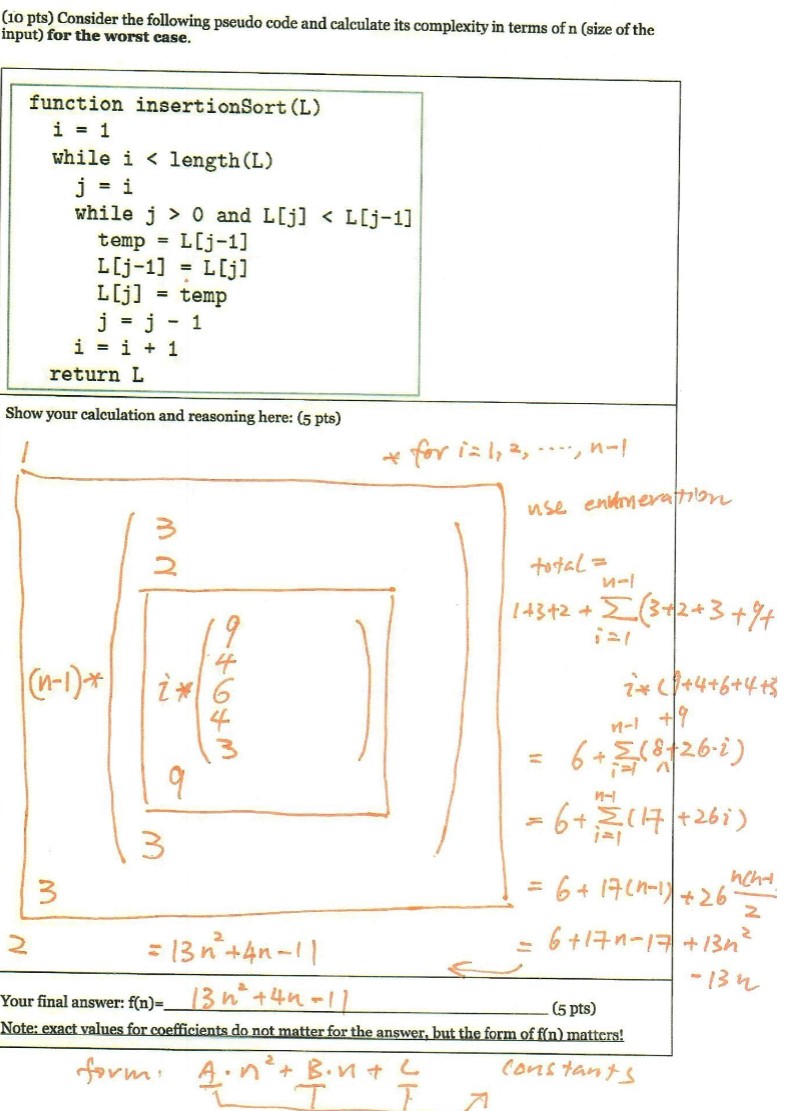 (10 pts) Consider the following pseudo code and calculate its complexity in terms of n (size of the
input) for the worst case.
function insertionSort(L)
i = 1
while i < length(L)
j = i
while j > 0 and L[j] < L[j-1]
temp = L[j-1]
L[j-1] = L[j]
L[j] = temp
j = j - 1
i = i + 1
return L
Show your calculation and reasoning here: (5 pts)
1
* for i=1, 2, ....., n-1
use enumeration
3
2
total =
n-1
1+3+2 + Σ(3+2+3+9+
i=1
(n-1)*
i*
9
4
6
4
3
i*(9+4+6+4+3
+9
n-1
= 6+Σ(8+26·i)
i=1 ^
9
n-1
= 6+Σ(17+26i)
i=1
3
3
= 6+17(n-1)+26 n(n-1
2
2
= 13n²+4n-11
= 6+17n-17+13n²
-13n
Your final answer: f(n)= 13n²+4n-11 (5 pts)
Note: exact values for coefficients do not matter for the answer, but the form of f(n) matters!
form: A·n²+B·n+C
constants